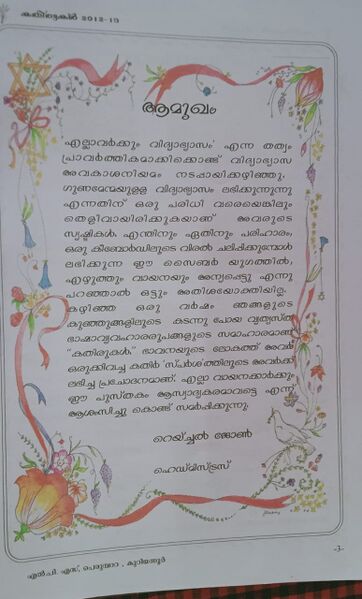 കതിരുകൾ 2012-13
ആമുഖം
എല്ലാവർക്കും വിദ്യാഭ്യാസം' എന്ന തത്വം
പ്രാവർത്തികമാക്കിക്കൊണ്ട് വിദ്യാഭ്യാസ
അവകാശനിയമം നടപ്പായിക്കഴിഞ്ഞു.
ഗുണമേന്മയുളള വിദ്യാഭ്യാസം ലഭിക്കുന്നുന്നു
എന്നതിന് ഒരു പരിധി വരെയെങ്കിലും
തെളിവായിരിക്കുകയാണ് അവരുടെ
സൃഷ്ടികൾ. എന്തിനും ഏതിനും പരിഹാരം,
ഒരു കീബോർഡിലൂടെ വിരൽ ചലിപ്പിക്കുമ്പോൾ
ലഭിക്കുന്ന ഈ സൈബർ യുഗത്തിൽ,
എഴുത്തും വായനയും അന്യപ്പെട്ടു എന്നു
പറഞ്ഞാൽ ഒട്ടും അതിശയോക്തിയില്ല.
കഴിഞ്ഞ ഒരു വർഷം ഞങ്ങളുടെ
കുഞ്ഞുങ്ങളിലൂടെ കടന്നു പോയ വ്യത്യസ്ത
ഭാഷാവ്യവഹാരരൂപങ്ങളുടെ സമാഹാരമാണ്
"കതിരുകൾ." ഭാവനയുടെ ലോകത്ത് അവർ
ഒരുക്കിവച്ച കതിർ 'സ്പർശ'ത്തിലൂടെ അവർക്ക്
ലഭിച്ച പ്രചോദനമാണ്. എല്ലാ വായനക്കാർക്കും
ഈ പുസ്തകം ആസ്വാദ്യകരമാവട്ടെ എന്ന്
ആശംസിച്ചു കൊണ്ട് സമർപ്പിക്കുന്നു.
റെയ്ച്ചൽ ജോൺ
ഹെഡ്മിസ്ട്രസ്
-3-
എൽ.പി. എസ്, പെരുമ്പാറ ,